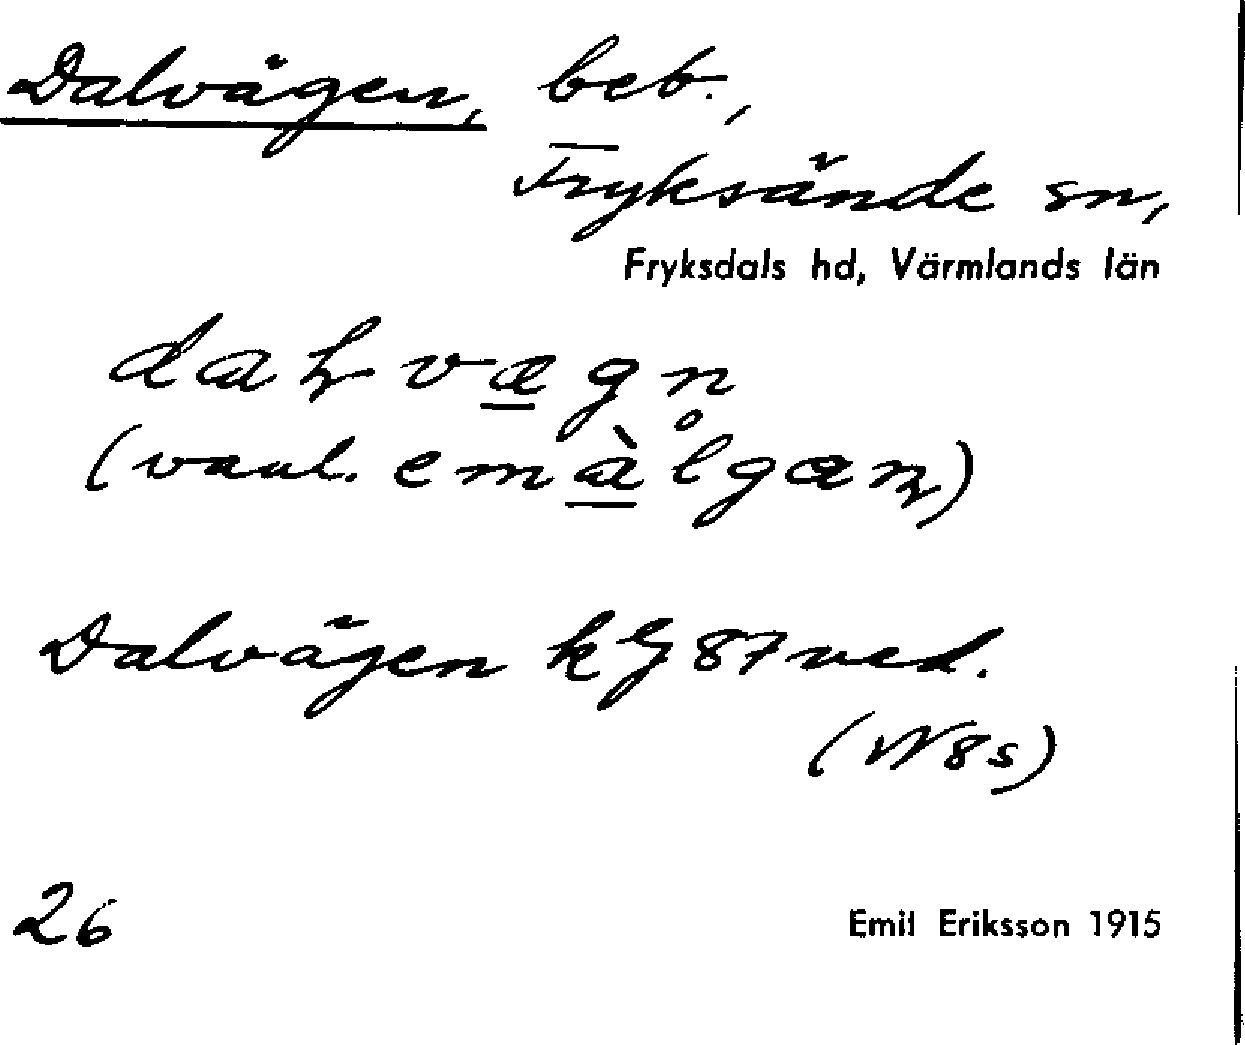 Dalvägen, beb.,
Fryksände sn,
Fryksdals hd, Värmlands län
daɽvægn
(vanl.
Dalvägen kG 87 ved.
(W8s)
26
Emil Eriksson 1915